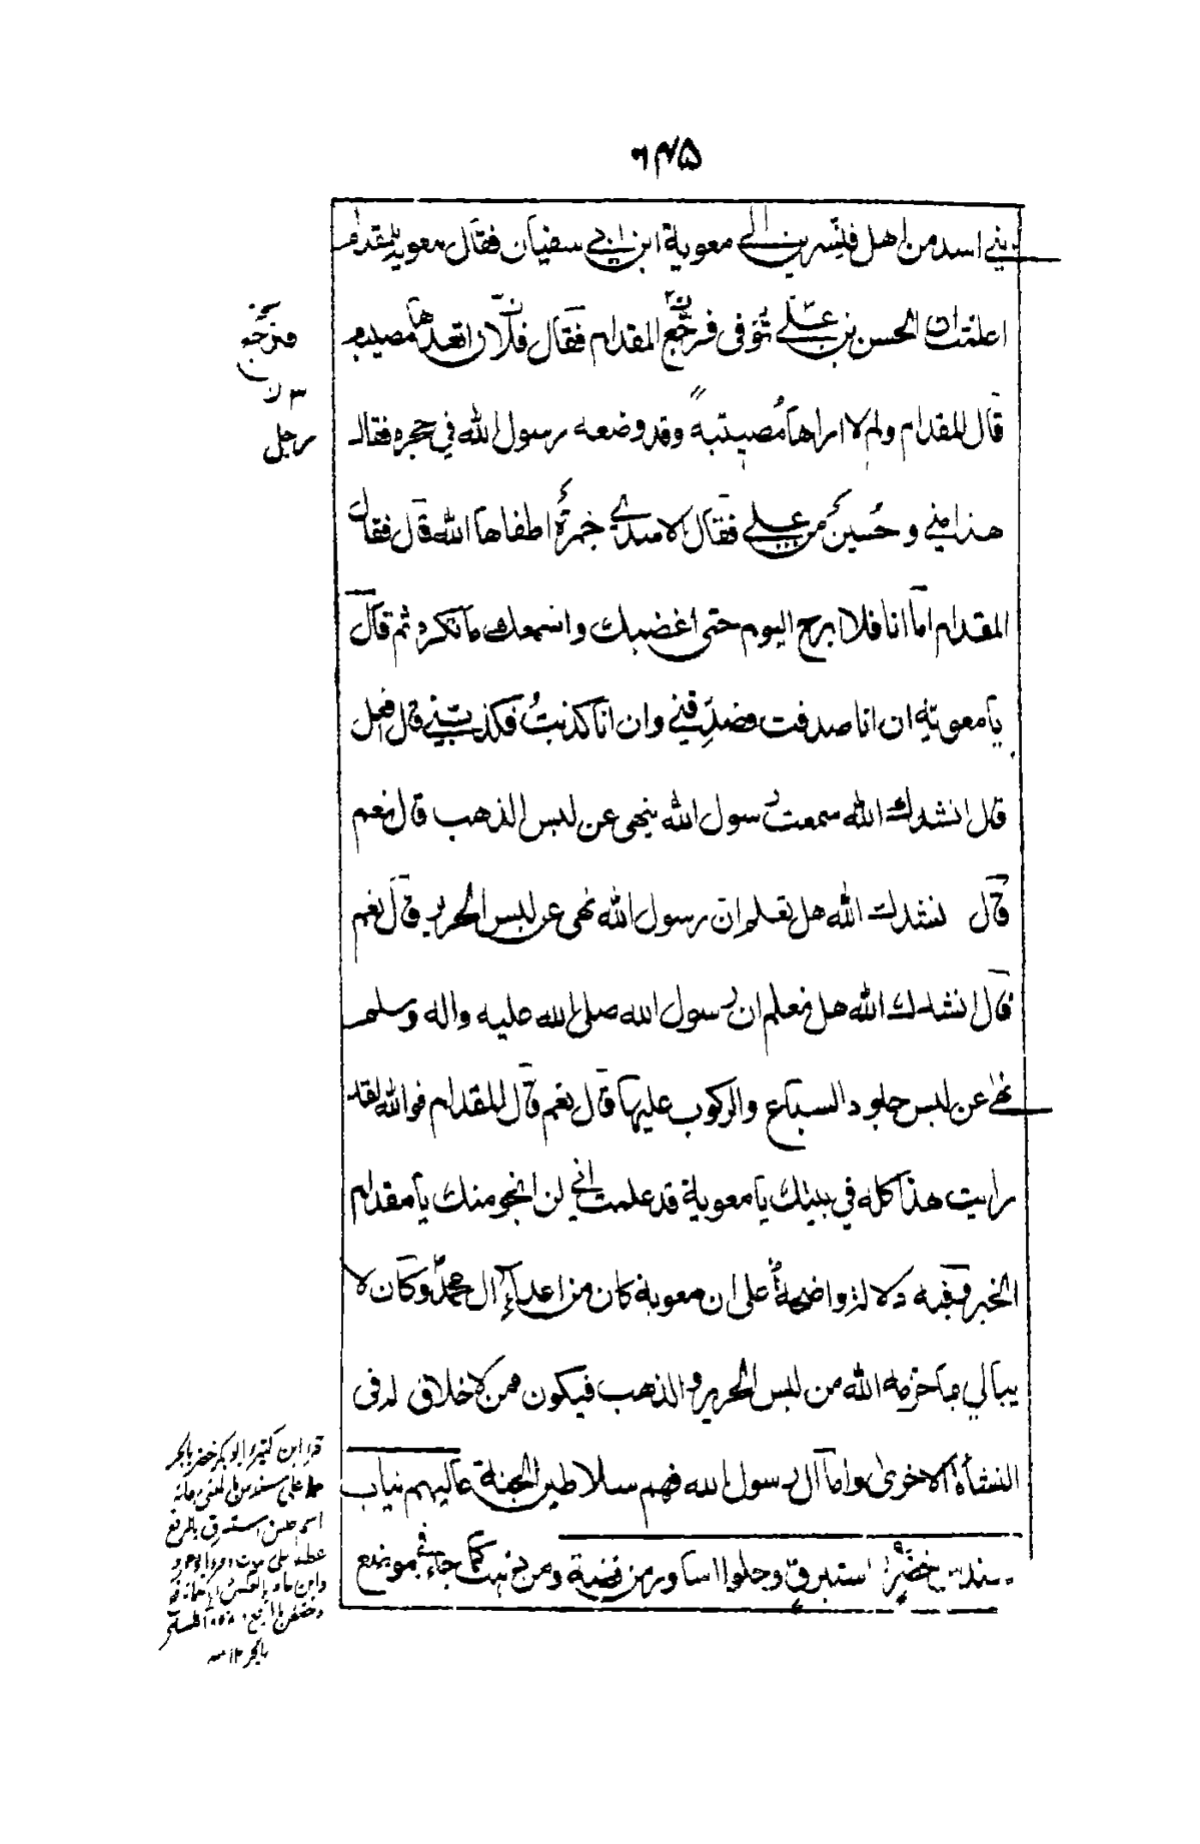 ٦٤٥
بني اسد من اهل قنسرين الى معوية ابن ابي سفيان فقال معوية للمقدام
اعلمت ان الحسن بن علي توفى فرجع المقدام فقال فلان اتعدها مصيبة
قال المقدام ولم لا اراها مصيبة وقد وضعه رسول الله في حجره فقال
هذا مني و حسين من علي فقال الاسدي جمرة اطفاها الله قال فقال
المقدام اما انا فلا ابرح اليوم حتى اغضبك واسمعك ما تكره ثم قال
يا معوية ان انا صدقت فصدقني وان انا كذبت فكذبني قال افعل
قال انشدك الله سمعت رسول الله ينهى عن لبس الذهب قال نعم
قال نشدك الله هل تعلم ان رسول الله نهى عن لبس الحرير قال نعم
قال انشدك الله هل تعلم ان رسول الله صلى الله عليه واله وسلم
نهى عن لبس جلود السباع والركوب عليها قال نعم قال المقدام فوالله لقد
رايت هذا كله في بيتك يا معوية قد علمت اني لن انجو منك يا مقدام
الخبر ففيه دلالة واضحة على ان معوية كان من اعداء ال محمد وكان لا
يبالي ما حرمه الله من لبس الحرير والذهب فيكون ممن لا خلاق له فى
النشأة الاخرى واما ال رسول الله فهم سلاطين الجنة عاليهم ثياب
سندس خضر استبرق وحلوا اساور من فضة ومن ذهب كما جاء في موضع
رجل